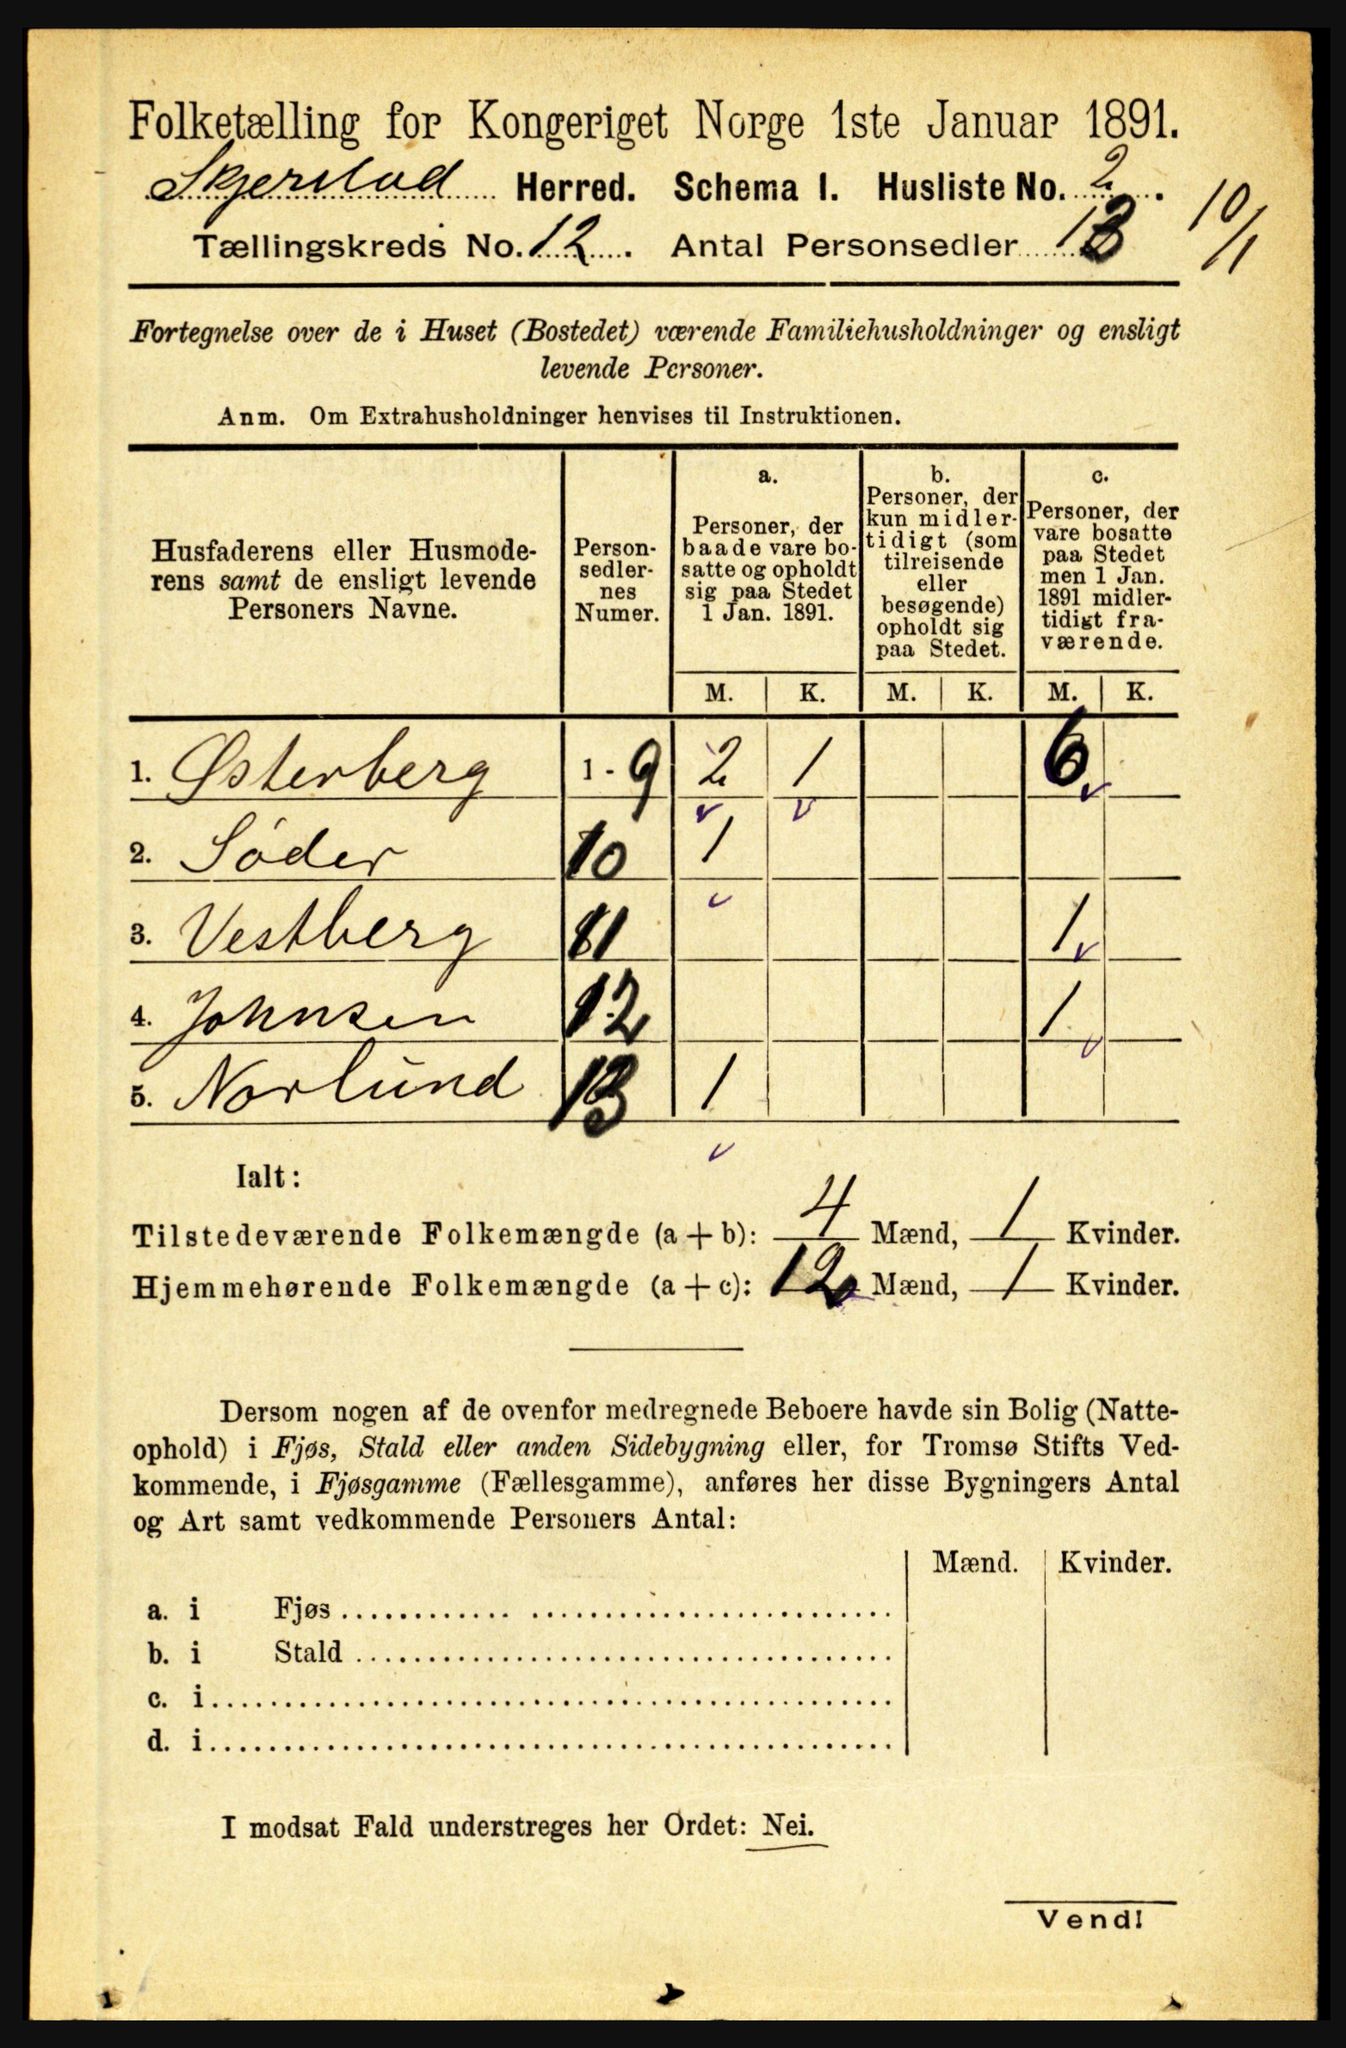 Folketælling for Kongeriget Norge 1ste Januar 1891.
Skjerstad Herred. Schema I. Husliste No. 2.
10/1
Tællingskreds No. 12. Antal Personsedler 13
Fortegnelse over de i Huset (Bostedet) værende Familiehusholdninger og ensligt
levende Personer.
Anm. Om Extrahusholdninger henvises til Instruktionen.
Husfaderens eller Husmode-
rens samt de ensligt levende
Personers Navne.
Person-
sedler-
nes
Numer.
a.
Personer, der
baade vare bo-
satte og opholdt
sig paa Stedet
1 Jan. 1891.
b.
Personer, der
kun midler-
tidigt (som
tilreisende
eller
besøgende)
opholdt sig
paa Stedet.
c.
Personer, der
vare bosatte
paa Stedet
men 1 Jan.
1891 midler-
tidigt fra-
værende.
M. K. M. K. M. K.
1. Østerberg 1-9 2 1 6
2. Søder 10 1
3. Vestberg 11 1
4. Johnsen 12 1
5. Norlund 13 1
Ialt:
Tilstedeværende Folkemængde (a + b): 4 Mænd, 1 Kvinder.
Hjemmehørende Folkemængde (a + c): 12 Mænd, 1 Kvinder.
Dersom nogen af de ovenfor medregnede Beboere havde sin Bolig (Natte-
ophold) i Fjøs, Stald eller anden Sidebygning eller, for Tromsø Stifts Ved-
kommende, i Fjøsgamme (Fællesgamme), anføres her disse Bygningers Antal
og Art samt vedkommende Personers Antal:
Mænd. Kvinder.
a. i Fjøs
b. i Stald
c. i
d. i
I modsat Fald understreges her Ordet: Nei.
Vend!